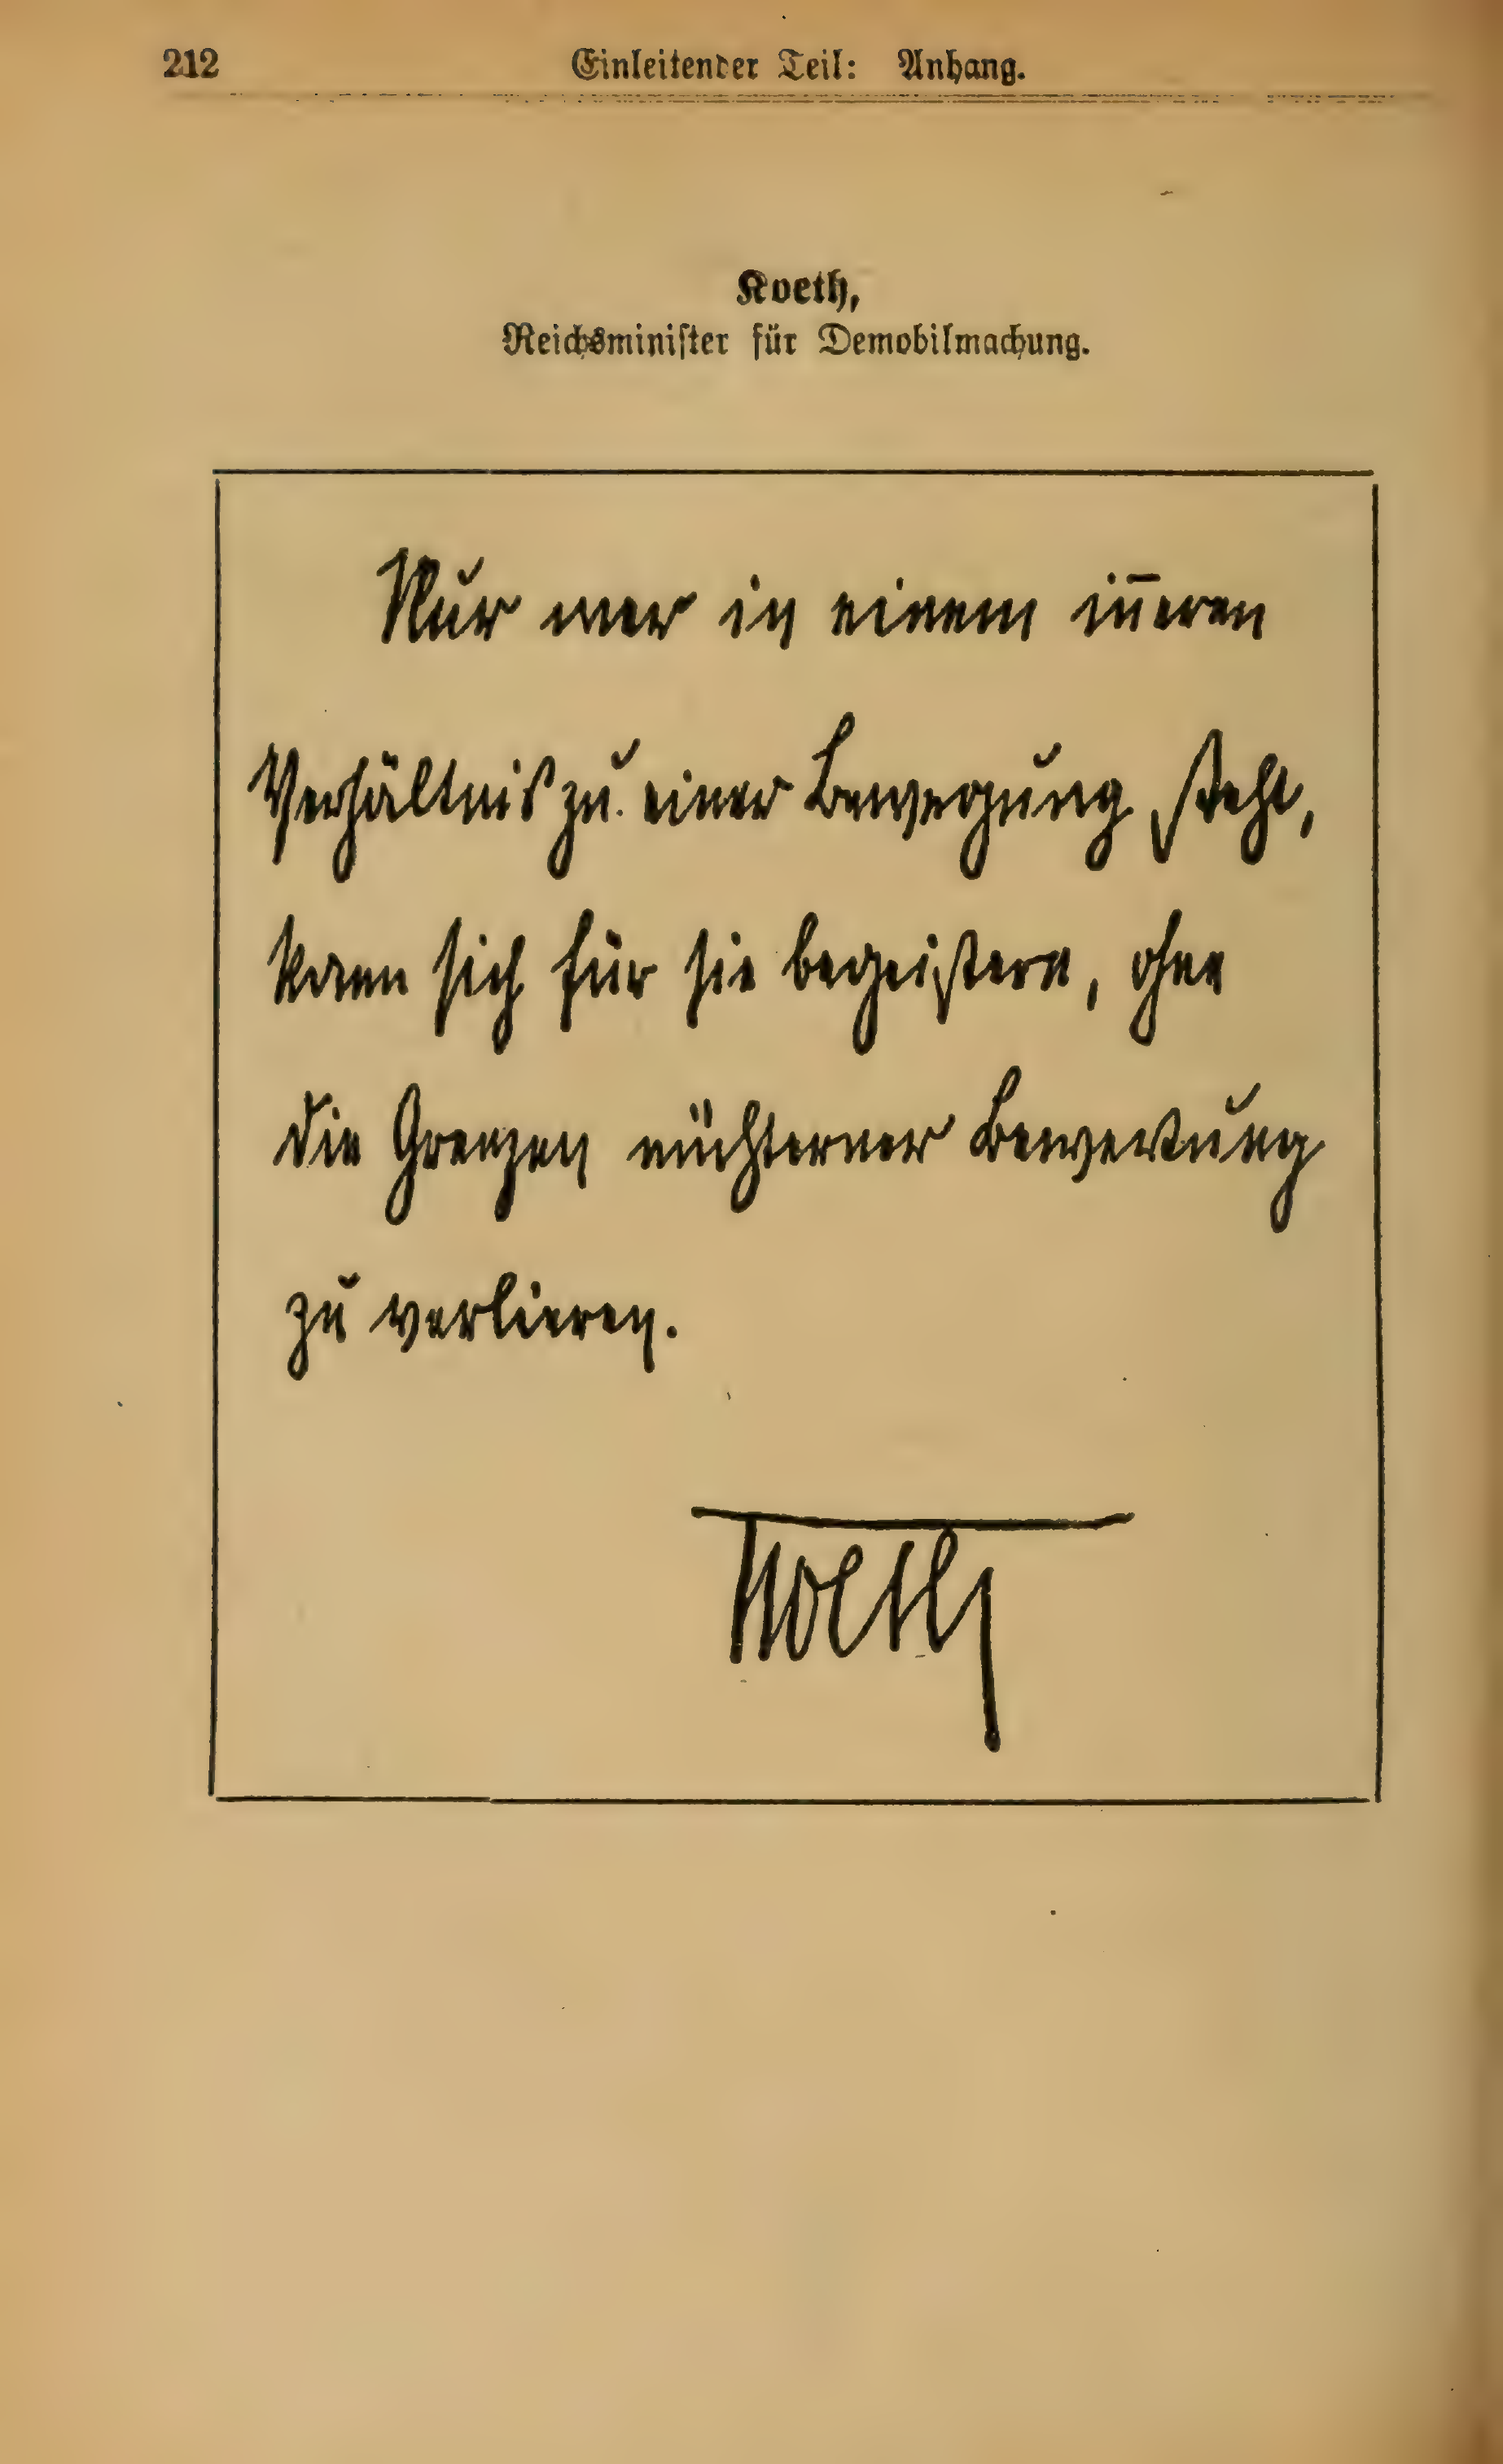 212 Einleitender Teil: Anhang.
Koeth,
Reichsminister für Demobilmachung.
Nur wer in einem in̅eren
Verhältnis zu einer Bewegung steht,
kann sich für sie begeistern, ohne
die Grenzen nüchterner Bewertung
zu verlieren.
Koeth